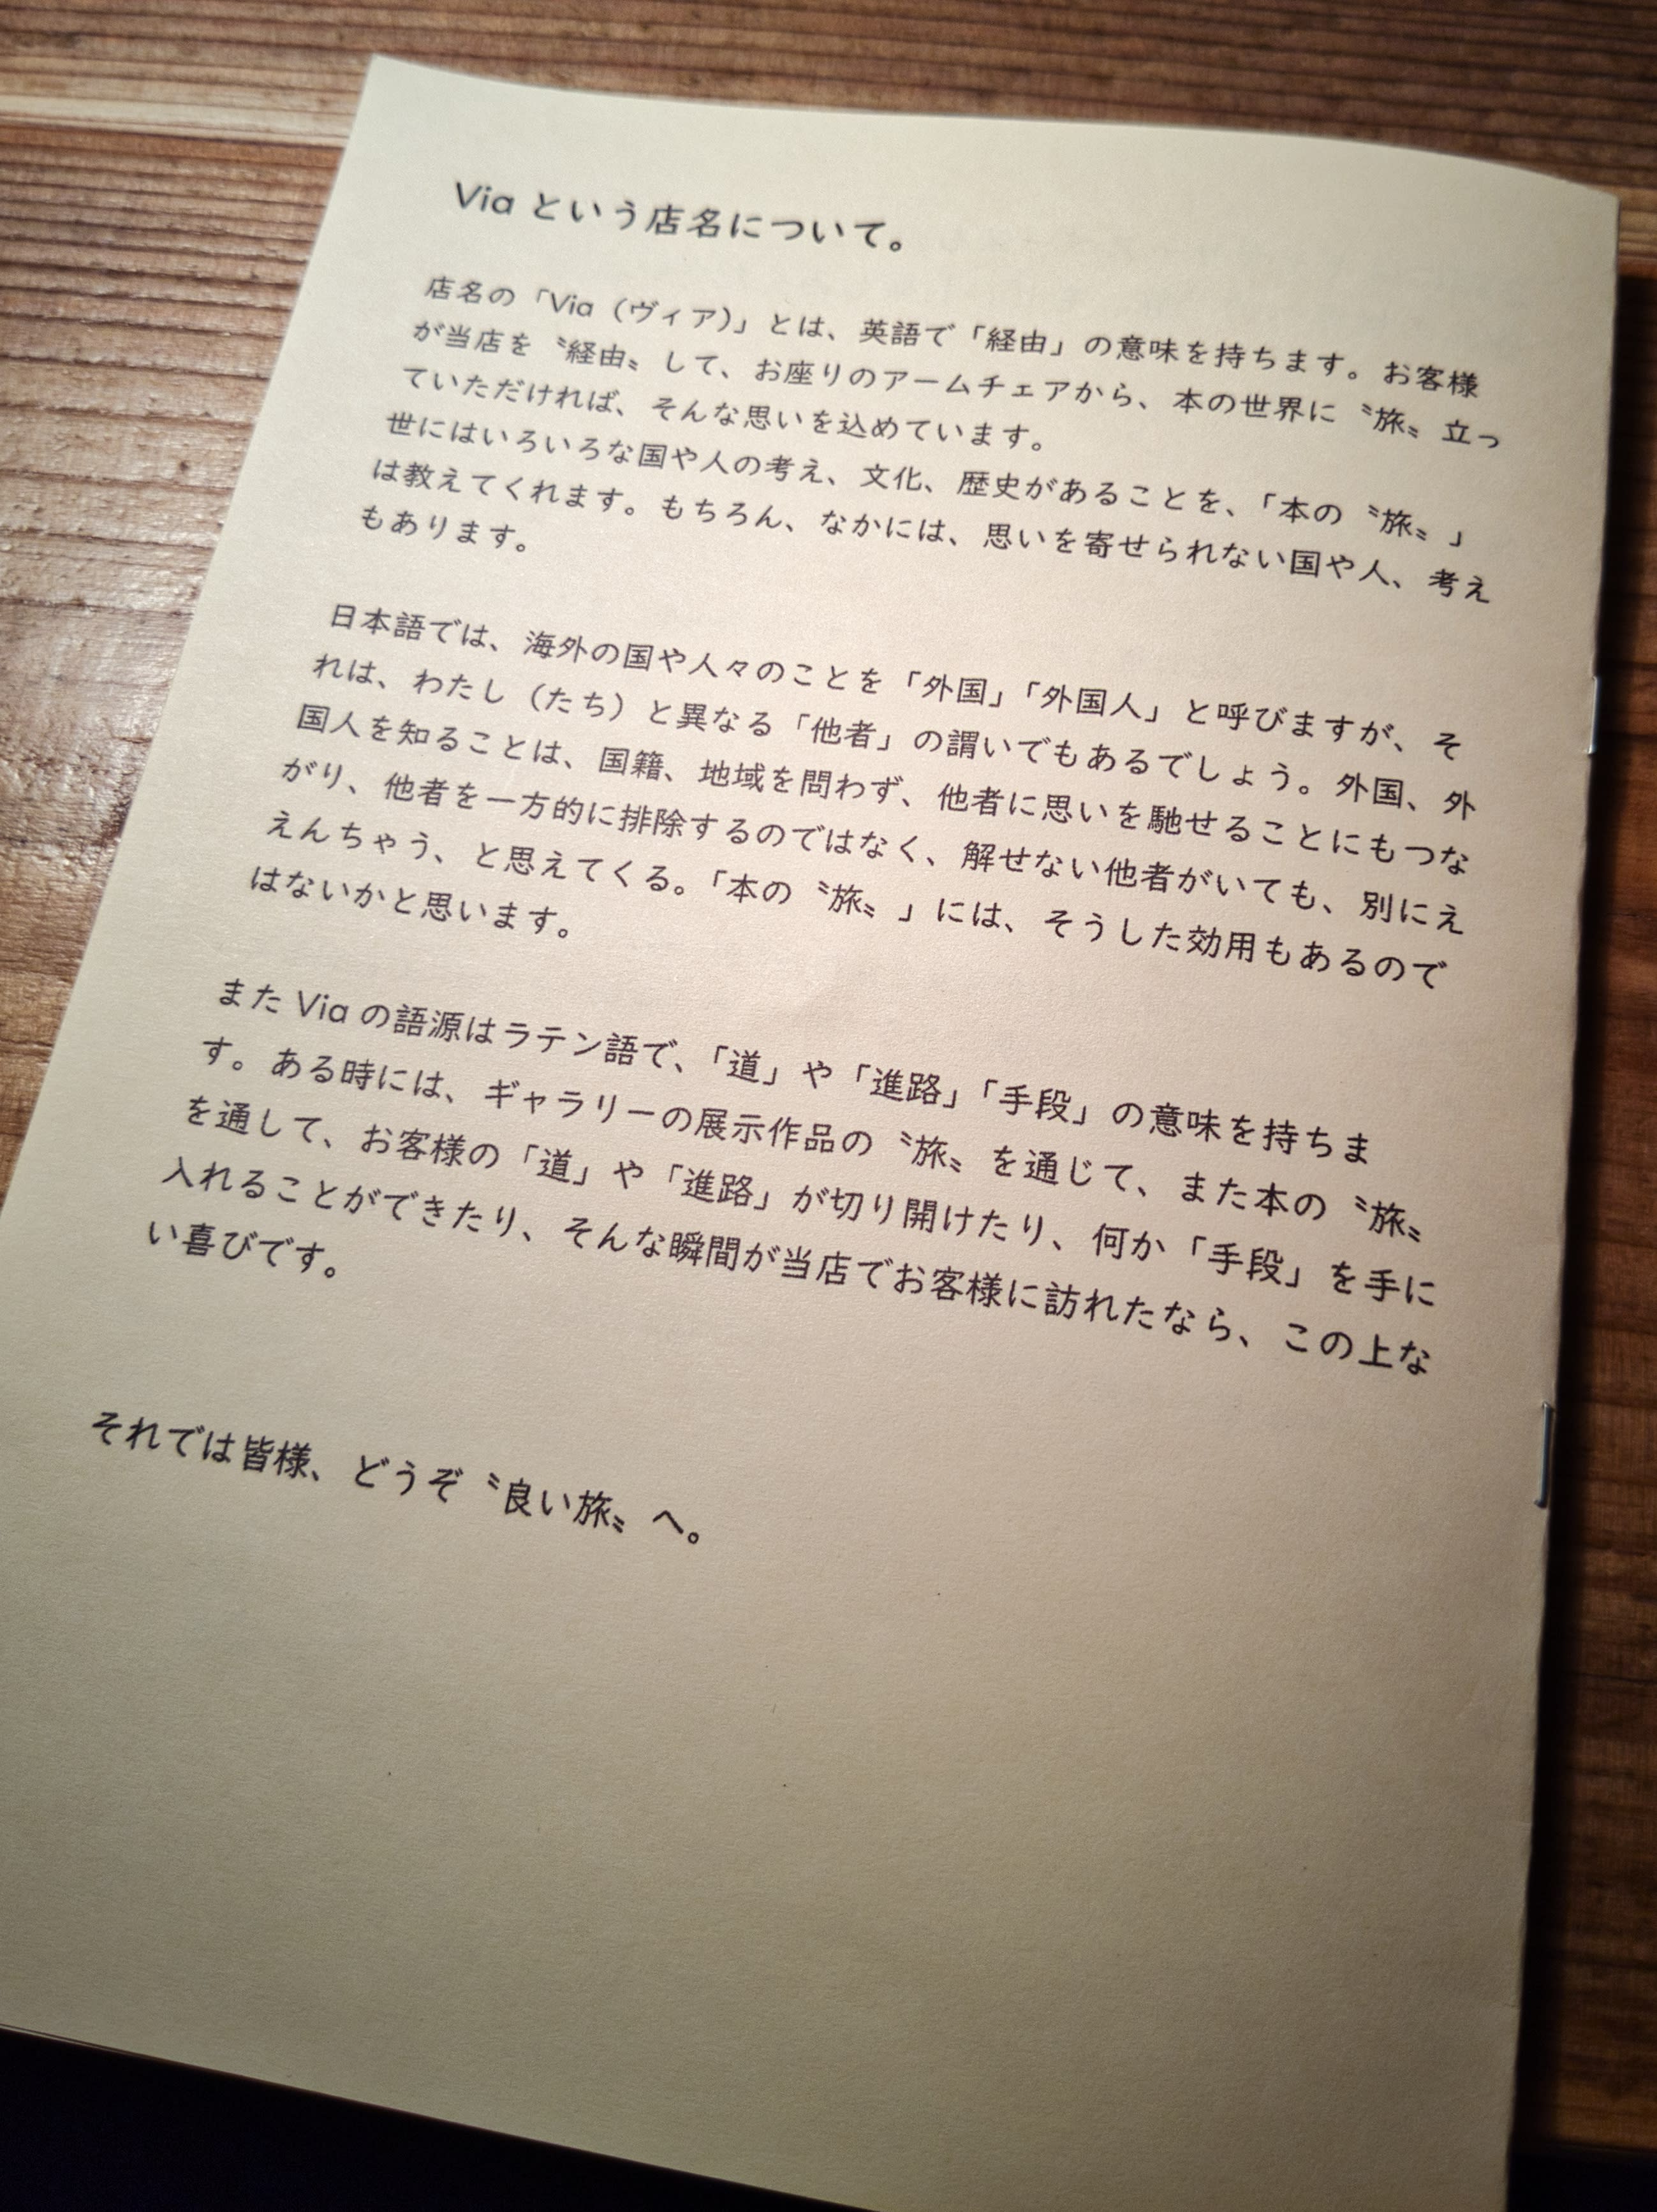 Via という店名について。
店名の「Via（ヴィア）」とは、英語で「経由」の意味を持ちます。お客様
が当店を〝経由〟して、お座りのアームチェアから、本の世界に〝旅〟立っ
ていただければ、そんな思いを込めています。
世にはいろいろな国や人の考え、文化、歴史があることを、「本の〝旅〟」
は教えてくれます。もちろん、なかには、思いを寄せられない国や人、考え
もあります。
日本語では、海外の国や人々のことを「外国」「外国人」と呼びますが、そ
れは、わたし（たち）と異なる「他者」の謂いでもあるでしょう。外国、外
国人を知ることは、国籍、地域を問わず、他者に思いを馳せることにもつな
がり、他者を一方的に排除するのではなく、解せない他者がいても、別にえ
えんちゃう、と思えてくる。「本の〝旅〟」には、そうした効用もあるので
はないかと思います。
また Via の語源はラテン語で、「道」や「進路」「手段」の意味を持ちま
す。ある時には、ギャラリーの展示作品の〝旅〟を通じて、また本の〝旅〟
を通して、お客様の「道」や「進路」が切り開けたり、何か「手段」を手に
入れることができたり、そんな瞬間が当店でお客様に訪れたなら、この上な
い喜びです。
それでは皆様、どうぞ〝良い旅〟へ。